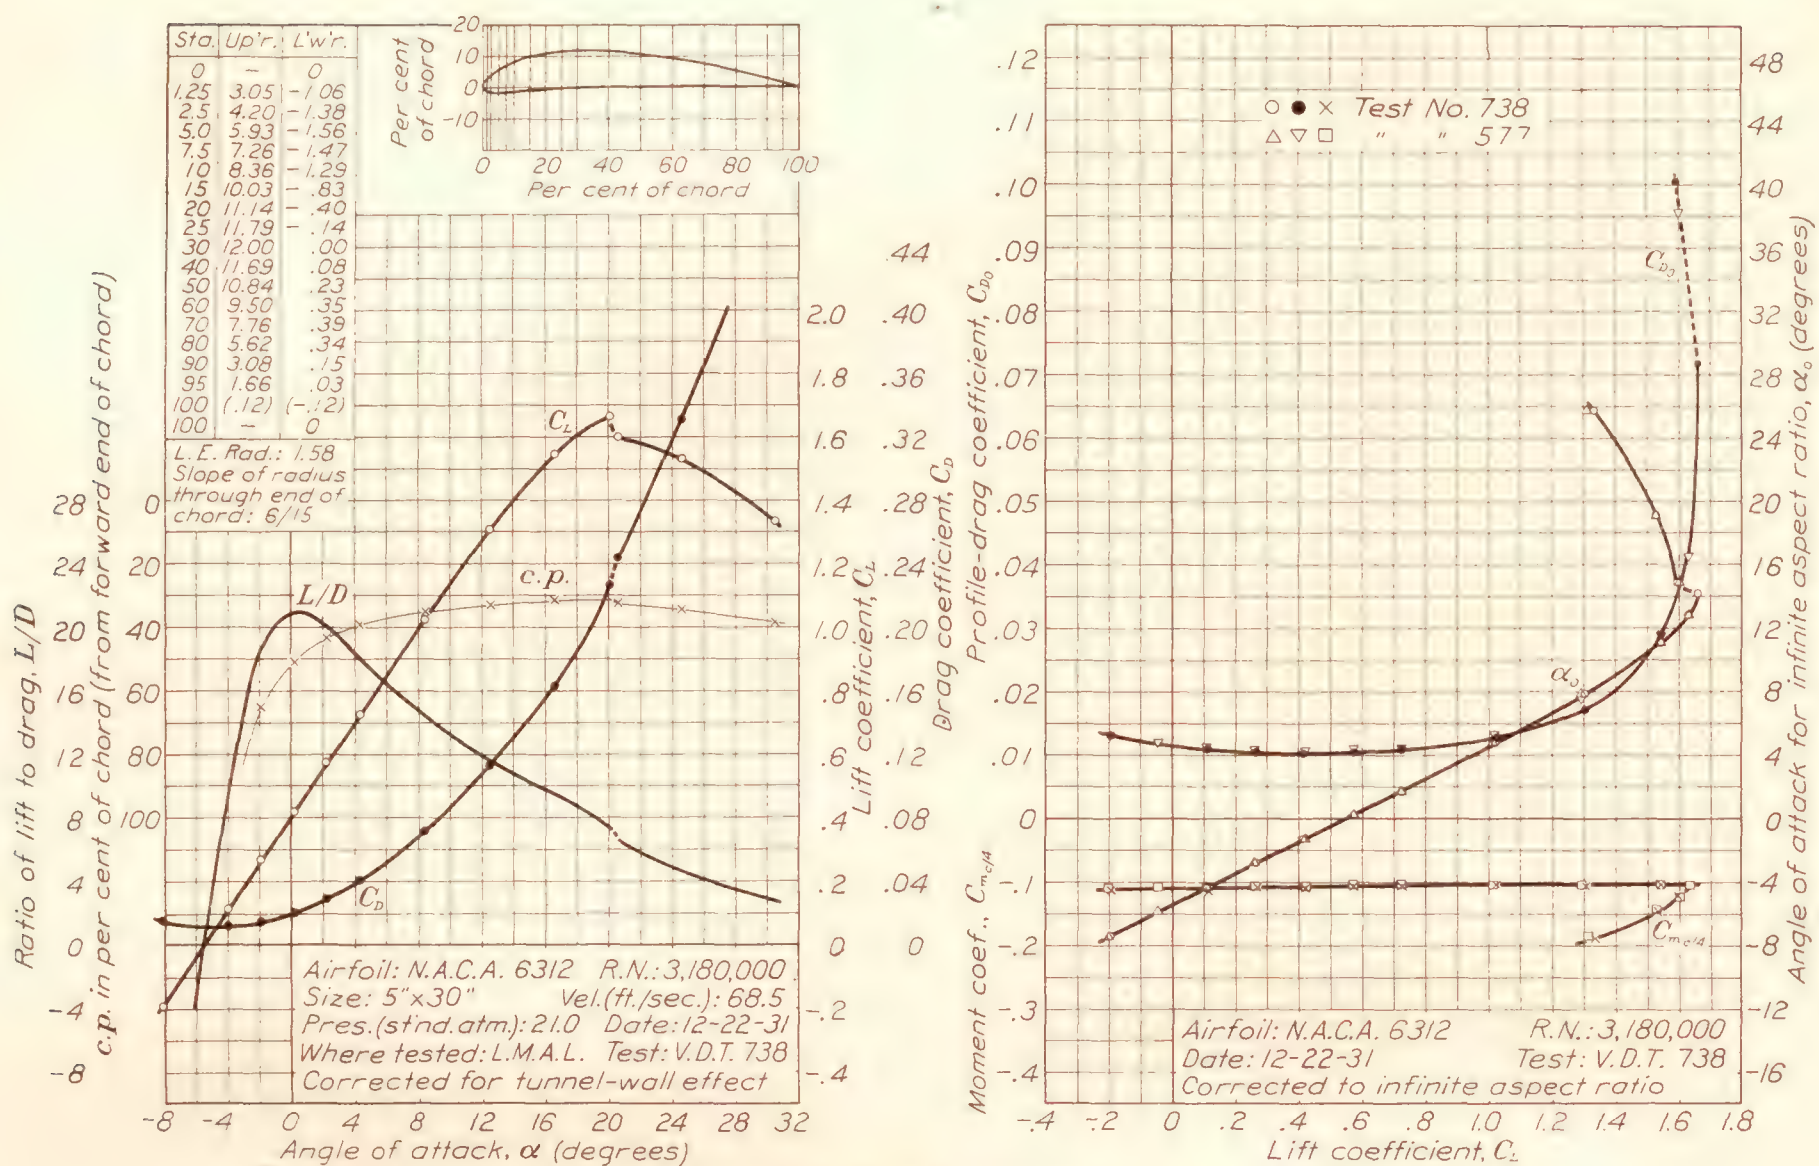 Sta. Up'r. L'w'r.
0 – 0
1.25 3.05 -1.06
2.5 4.20 -1.38
5.0 5.93 -1.56
7.5 7.26 -1.47
10 8.36 -1.29
15 10.03 - .83
20 11.14 - .40
25 11.79 - .14
30 12.00 .00
40 11.69 .08
50 10.84 .23
60 9.50 .35
70 7.76 .39
80 5.62 .34
90 3.08 .15
95 1.66 .03
100 (.12) (-.12)
100 – 0
L.E. Rad.: 1.58
Slope of radius
through end of
chord: 6/15
Per cent
of chord
20
10
0
-10
0 20 40 60 80 100
Per cent of chord
Ratio of lift to drag, L/D
28
24
20
16
12
8
4
0
-4
-8
c.p. in per cent of chord (from forward end of chord)
0
20
40
60
80
100
L/D
c.p.
C_L
C_D
2.0
1.8
1.6
1.4
1.2
1.0
.8
.6
.4
.2
0
-.2
-.4
Lift coefficient, C_L
.44
.40
.36
.32
.28
.24
.20
.16
.12
.08
.04
0
Drag coefficient, C_D
Airfoil: N.A.C.A. 6312 R.N.: 3,180,000
Size: 5"x30" Vel.(ft./sec.): 68.5
Pres.(st'nd. atm.): 21.0 Date: 12-22-31
Where tested: L.M.A.L. Test: V.D.T. 738
Corrected for tunnel-wall effect
-8 -4 0 4 8 12 16 20 24 28 32
Angle of attack, α (degrees)
Profile-drag coefficient, C_D0
.12
.11
.10
.09
.08
.07
.06
.05
.04
.03
.02
.01
0
Moment coef., C_mc/4
-.1
-.2
-.3
-.4
○ ● × Test No. 738
△ ▽ □ " " 577
C_D0
α_0
C_mc/4
48
44
40
36
32
28
24
20
16
12
8
4
0
-4
-8
-12
-16
Angle of attack for infinite aspect ratio, α_0 (degrees)
Airfoil: N.A.C.A. 6312 R.N.: 3,180,000
Date: 12-22-31 Test: V.D.T. 738
Corrected to infinite aspect ratio
-.4 -.2 0 .2 .4 .6 .8 1.0 1.2 1.4 1.6 1.8
Lift coefficient, C_L